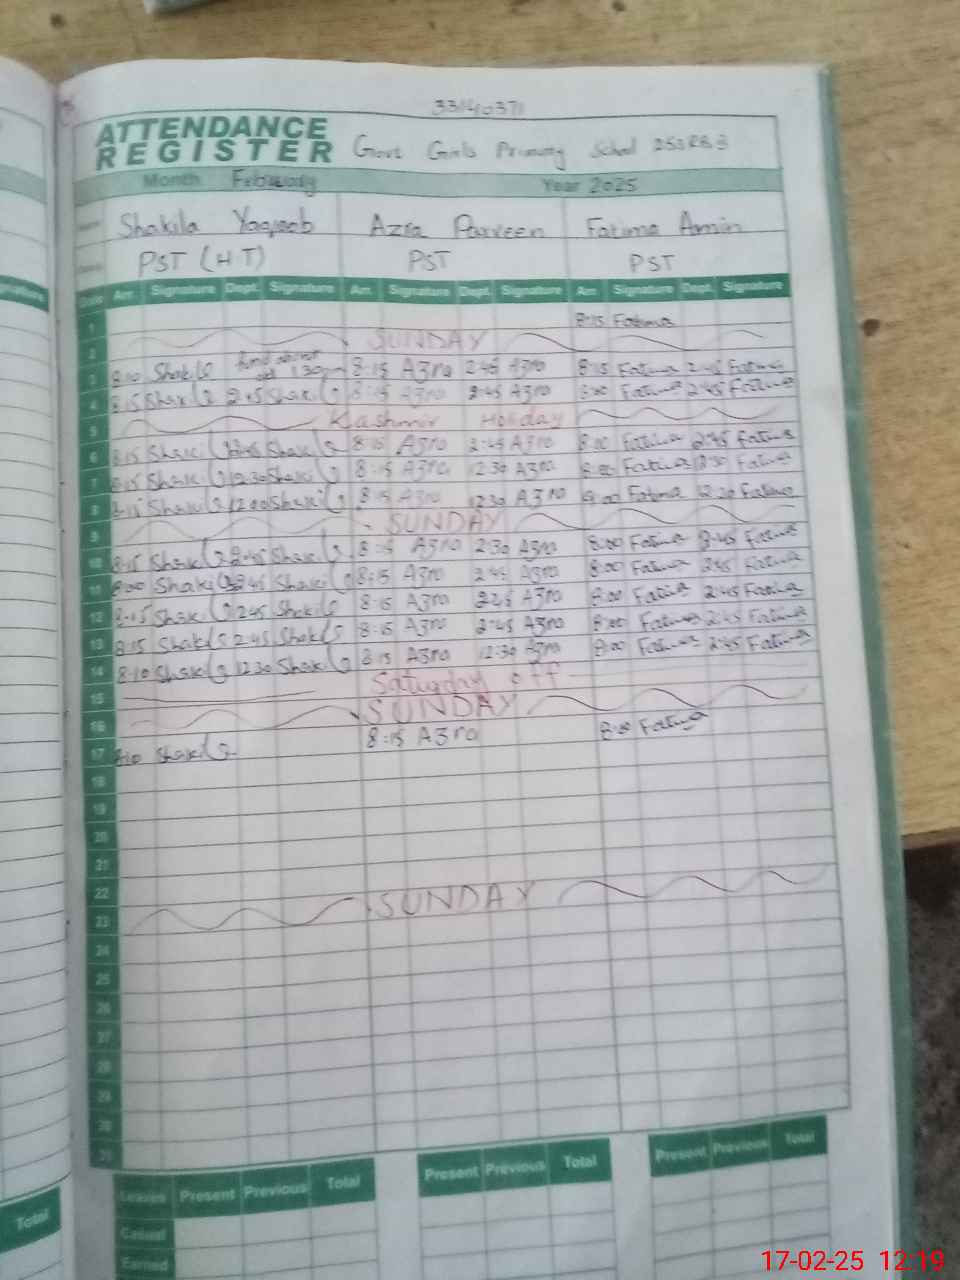 33140371
ATTENDANCE
REGISTER Govt Girls Primary School 253 RB 3
Month February Year 2025
Shakila Yaqoob Azra Parveen Fatima Amin
PST (H.T) PST PST
Date Arr. Signature Dept. Signature Arr. Signature Dept. Signature Arr. Signature Dept. Signature
1 8:15 Fatima
2 SUNDAY
3 8:10 Shakila 1:30pm 8:15 Azra 2:45 Azra 8:15 Fatima 2:45 Fatima
4 8:15 Shakila 2:45 Shakila 8:15 Azra 2:45 Azra 8:00 Fatima 2:45 Fatima
5 Kashmir Holiday
6 8:15 Shakila 2:45 Shakila 8:15 Azra 2:45 Azra 8:00 Fatima 2:45 Fatima
7 8:15 Shakila 12:30 Shakila 8:15 Azra 12:30 Azra 8:00 Fatima 12:30 Fatima
8 8:15 Shakila 12:00 Shakila 8:15 Azra 12:30 Azra 8:00 Fatima 12:30 Fatima
9 SUNDAY
10 8:15 Shakila 2:45 Shakila 8:15 Azra 2:30 Azra 8:00 Fatima 2:45 Fatima
11 8:00 Shakila 2:45 Shakila 8:15 Azra 2:45 Azra 8:00 Fatima 2:45 Fatima
12 8:15 Shakila 2:45 Shakila 8:15 Azra 2:45 Azra 8:00 Fatima 2:45 Fatima
13 8:15 Shakila 2:45 Shakila 8:15 Azra 2:45 Azra 8:00 Fatima 2:45 Fatima
14 8:10 Shakila 12:30 Shakila 8:15 Azra 12:30 Azra 8:00 Fatima 2:45 Fatima
15 Saturday off
16 SUNDAY
17 8:10 Shakila 8:15 Azra Fatima
18
19
20
21
22
23 SUNDAY
24
25
26
27
28
29
30
31
Leaves Present Previous Total Present Previous Total Present Previous Total
Casual
Earned
Total
17-02-25 12:19